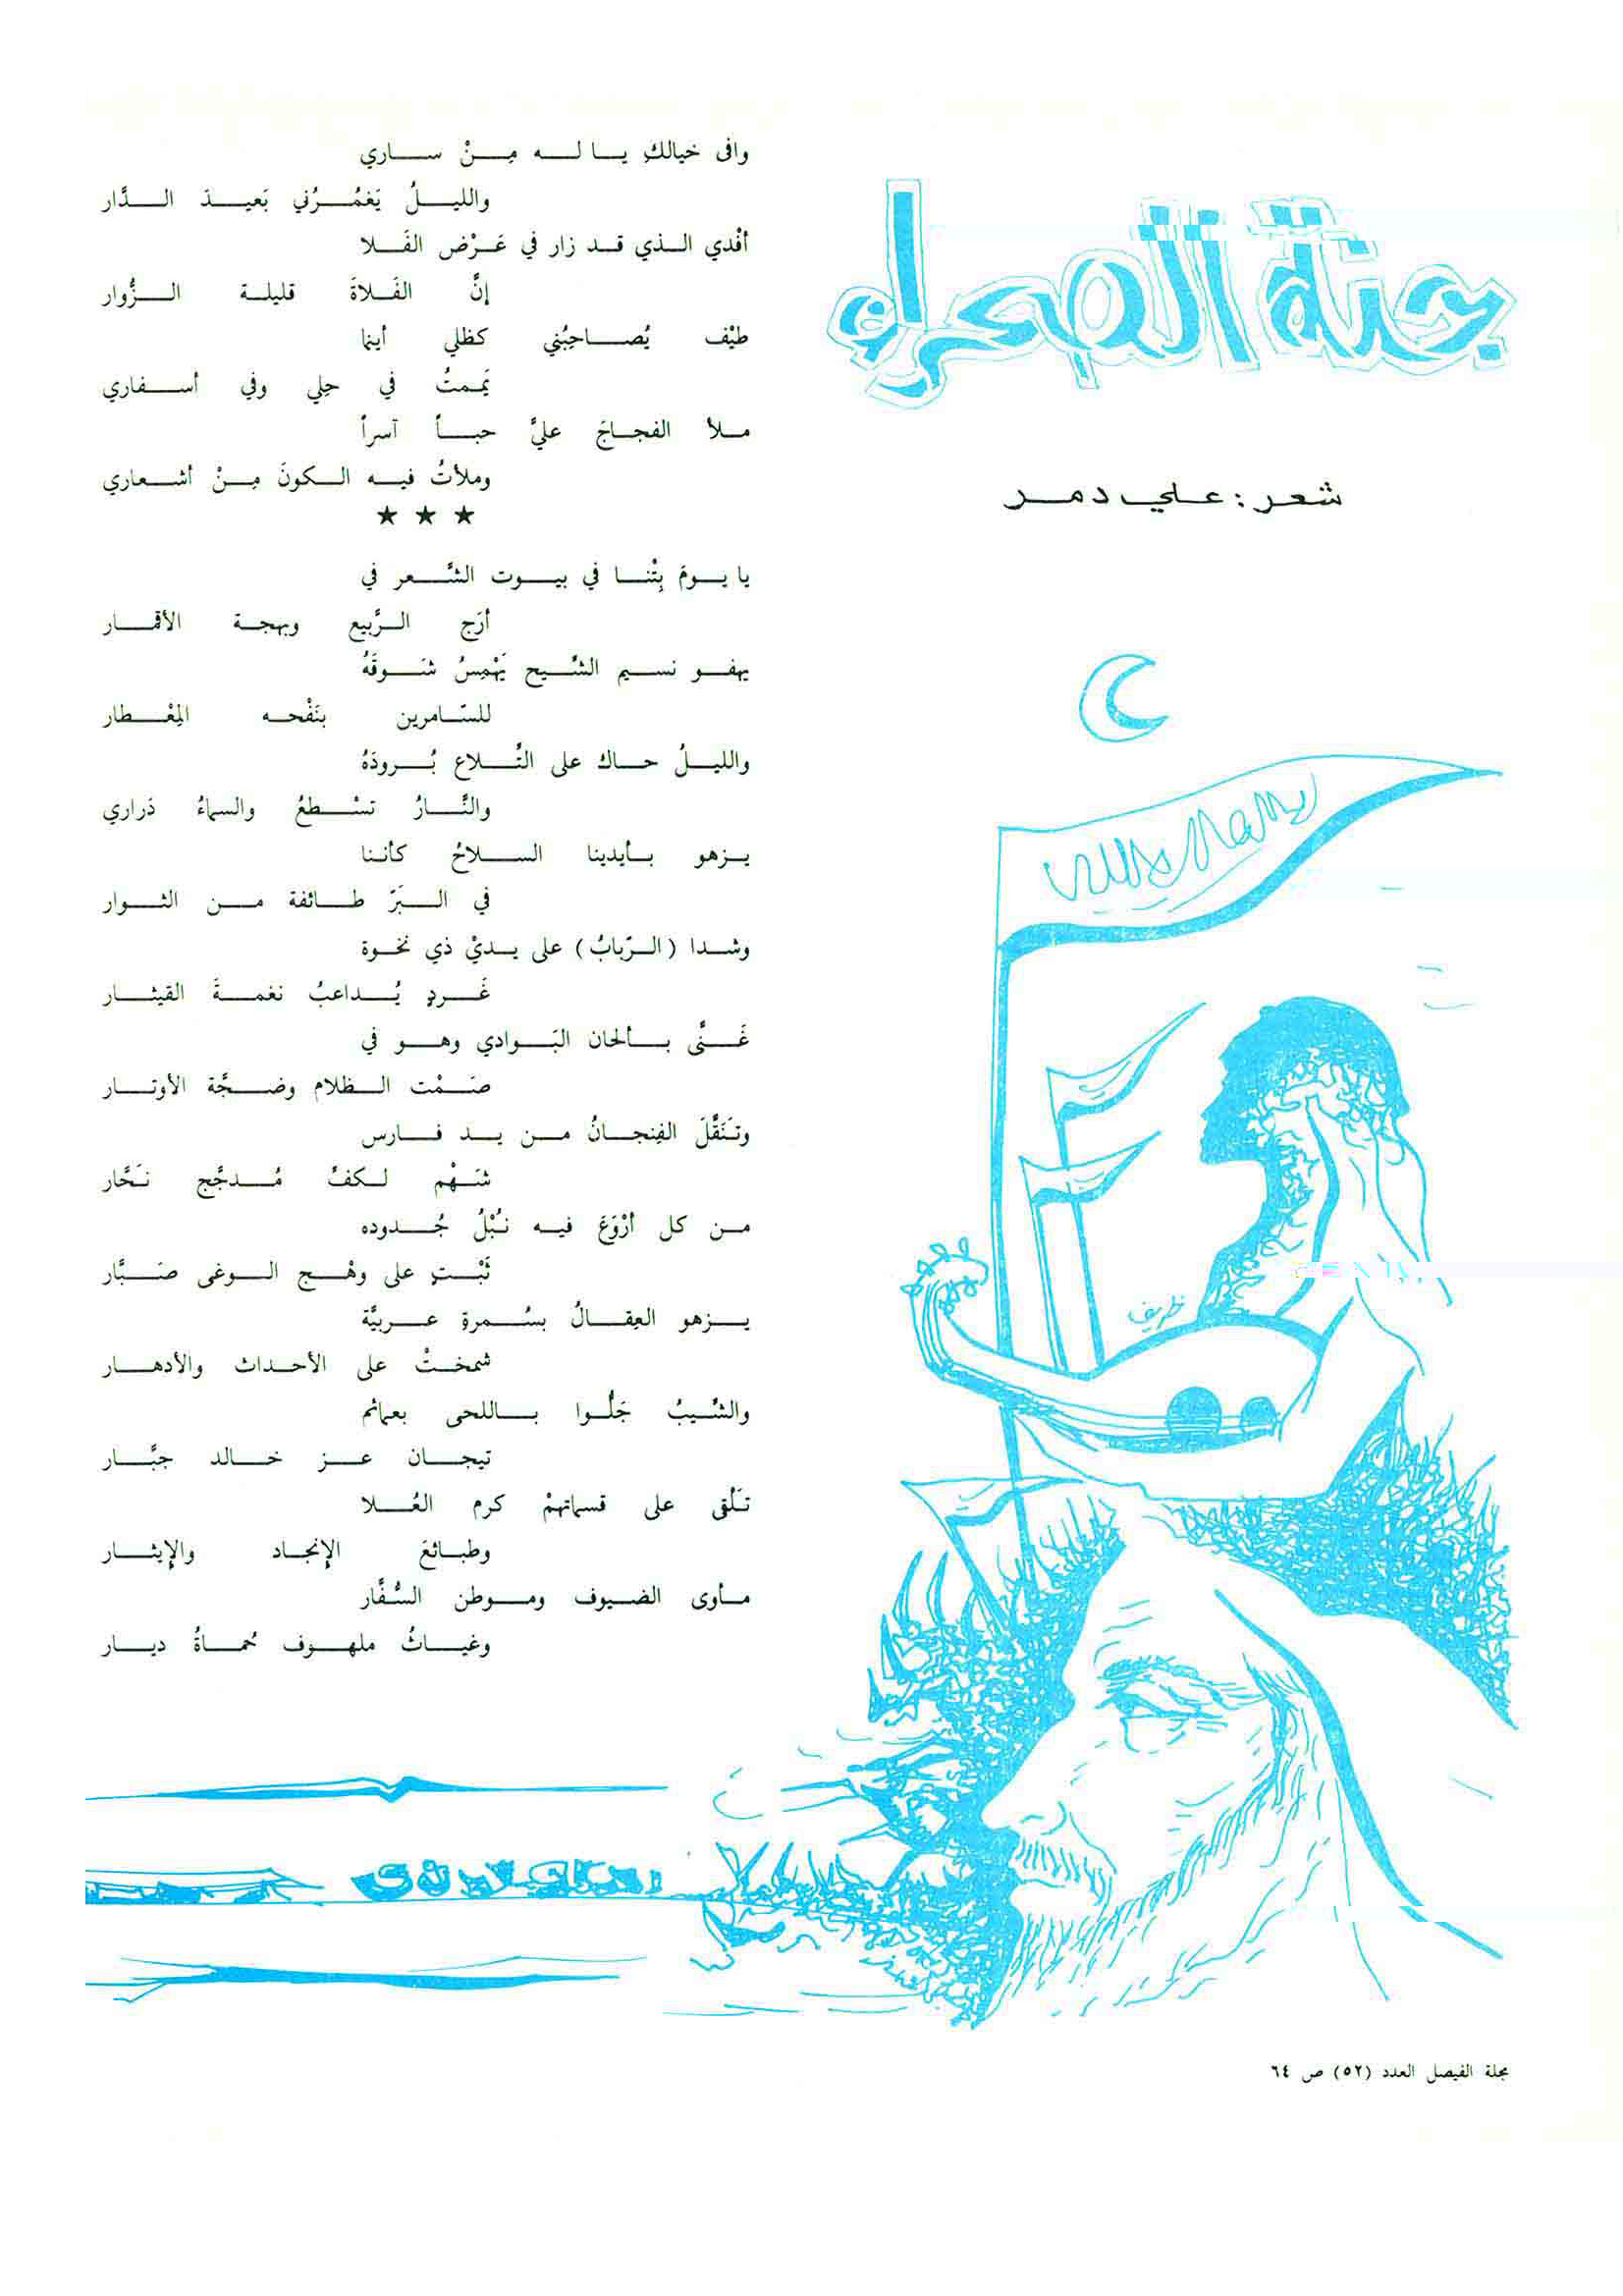 جنة الصحراء
شعر : علي دمر
وافى خيالكِ يا له مِنْ ساري
والليلُ يَغمُرُني بَعيدَ الدَّار
أفْدي الذي قد زار في عَرْض الفَلا
إنَّ الفَلاةَ قليلة الزُّوار
طيْف يُصاحِبُني كظلي أينما
يَممتُ في حِلي وفي أسفاري
ملأ الفجاجَ عليَّ حباً آسراً
وملأتُ فيه الكونَ مِنْ أشعاري
★ ★ ★
يا يومَ بِتْنا في بيوت الشَّعر في
أرَج الرَّبيع وبهجة الأقمار
يهفو نسيم الشِّيح يَهْمِسُ شَوقَهُ
للسّامرين بنَفْحه المِعْطار
والليلُ حاك على التِّلاع بُرودَهُ
والنَّارُ تسْطعُ والسماءُ دَراري
يزهو بأيدينا السلاحُ كأننا
في البَرّ طائفة من الثوار
وشدا (الرّبابُ) على يديْ ذي نخوة
غَردٍ يُداعبُ نغمةَ القيثار
غَنَّى بألحان البَوادي وهو في
صَمْت الظلام وضجَّة الأوتار
وتنَقَّلَ الفِنجانُ من يد فارس
شَهْم لكفِّ مُدجَّج نَحَّار
من كل أرْوَعَ فيه نُبْلُ جُدوده
ثَبْتٍ على وهْج الوغى صَبَّار
يزهو العِقالُ بسُمرةٍ عربيَّة
شمختْ على الأحداث والأدهار
والشِّيبُ جَلُّوا باللحى بعمائم
تيجان عز خالد جبَّار
تَلْقى على قسماتهمْ كرم العُلا
وطبائعَ الإنجاد والإيثار
مأوى الضيوف وموطن السُّفَّار
وغياثُ ملهوف حُماةُ ديار
ظريف
مجلة الفيصل العدد (٥٢) ص ٦٤